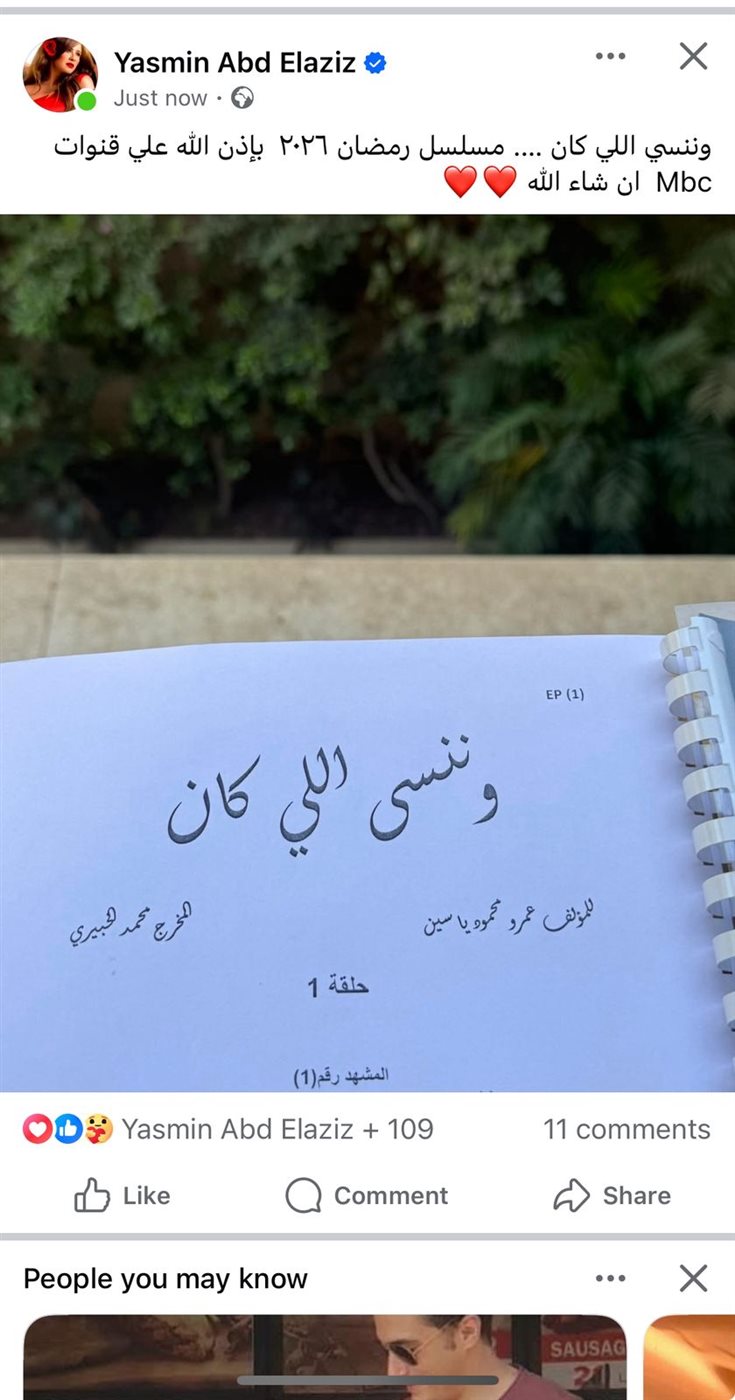 Yasmin Abd Elaziz
Just now ·
وننسي اللي كان .... مسلسل رمضان ٢٠٢٦ بإذن الله علي قنوات
Mbc ان شاء الله ❤️❤️
EP (1)
وننسى اللي كان
للمؤلف عمرو محمود ياسين
المخرج محمد الخبيري
حلقة 1
المشهد رقم(1)
Yasmin Abd Elaziz + 109
11 comments
Like
Comment
Share
People you may know
SAUSAG